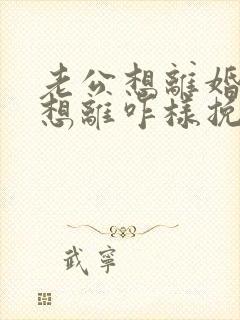 老公想離婚
想離咋樣挽
武寧